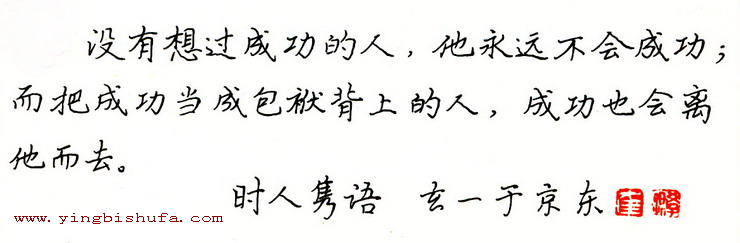 没有想过成功的人，他永远不会成功；
而把成功当成包袱背上的人，成功也会离
他而去。
时人隽语 玄一于京东
www.yingbishufa.com